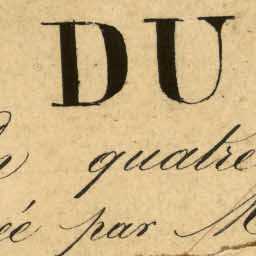 DU
n quatre
éé par M